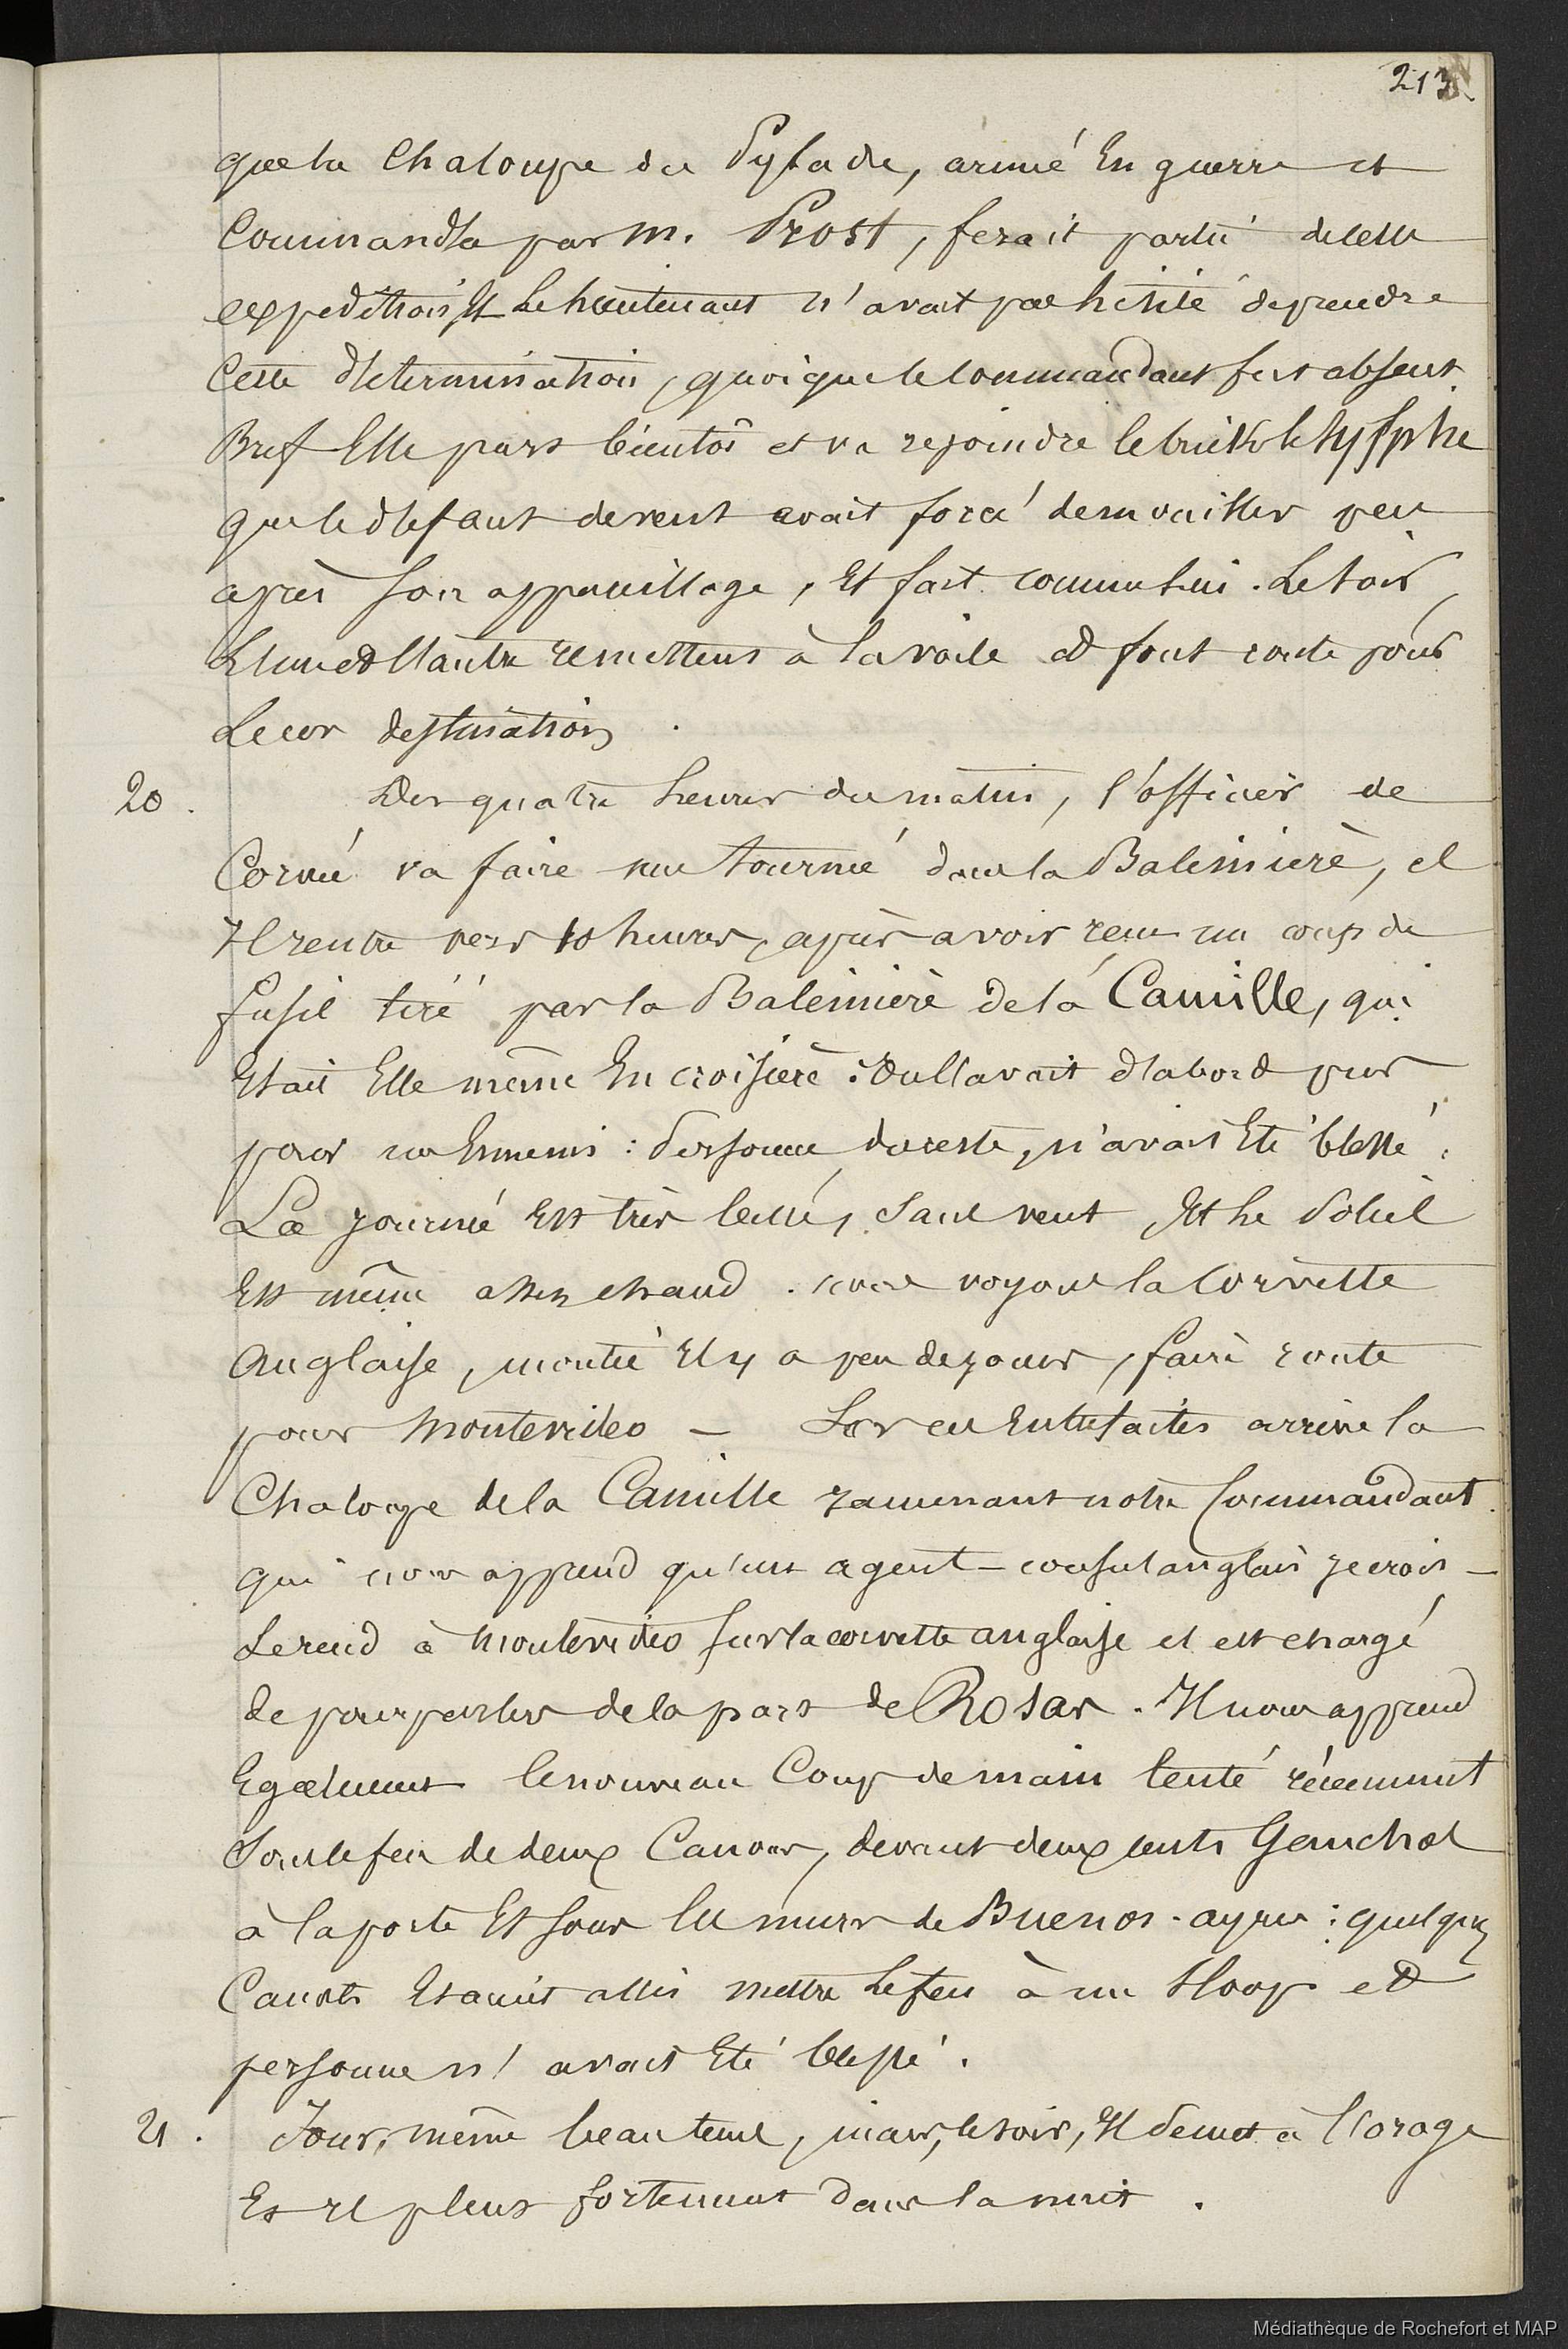 213
que la Chaloupe du Pylade, armé En guerre et
Commandée par m. Prost, ferait partie de cette
expedition Et Le lieutenant n'avait pas hésité de prendre
Cette détermination, quoique le commandant fut absent.
Bref Elle part bientôt et va rejoindre le brick le Sylphe
que le défaut de vent avait forcé de mouiller peu
après son appareillage, Et fait comme lui. Le soir,
L'un et l'autre remettent à la voile et font route pour
Leur destination.
20. Des quatre heures du matin, l'officier de
Corvée va faire une tournée dans la Baleinière, et
Il rentre vers 10 heures, après avoir reçu un coup de
fusil tiré par la Baleinière de la Camille, qui
Etait Elle même En croisière : On l'avait d'abord pris
pour un Ennemi : Personne, du reste, n'avait Eté blessé.
La journée Est très belle, Sans vent Et le Soleil
Est même assez chaud. nous voyons la Corvette
Anglaise, montée Il y a peu de jours, faire route
pour Montevideo — Sur ces Entrefaites arrive la
Chaloupe de la Camille ramenant notre Commandant
qui nous apprend qu'un agent-consul anglais je crois —
Se rend à Montevideo sur la corvette anglaise et est chargé
de pourparlers de la part de Rosas. Il nous apprend
Egalement le nouveau Coup de main tenté récemment
Sous le feu de deux Canons, devant deux cents Gauchos
à la porte Et sous les murs de Buenos-ayres : quelques
Canots Etaient allés mettre le feu à un Sloop et
personne n'avait Eté blessé.
21. Jour, même beau tems, mais, le soir, Il se met à l'orage
Et Il pleut fortement dans la nuit.
Médiathèque de Rochefort et MAP